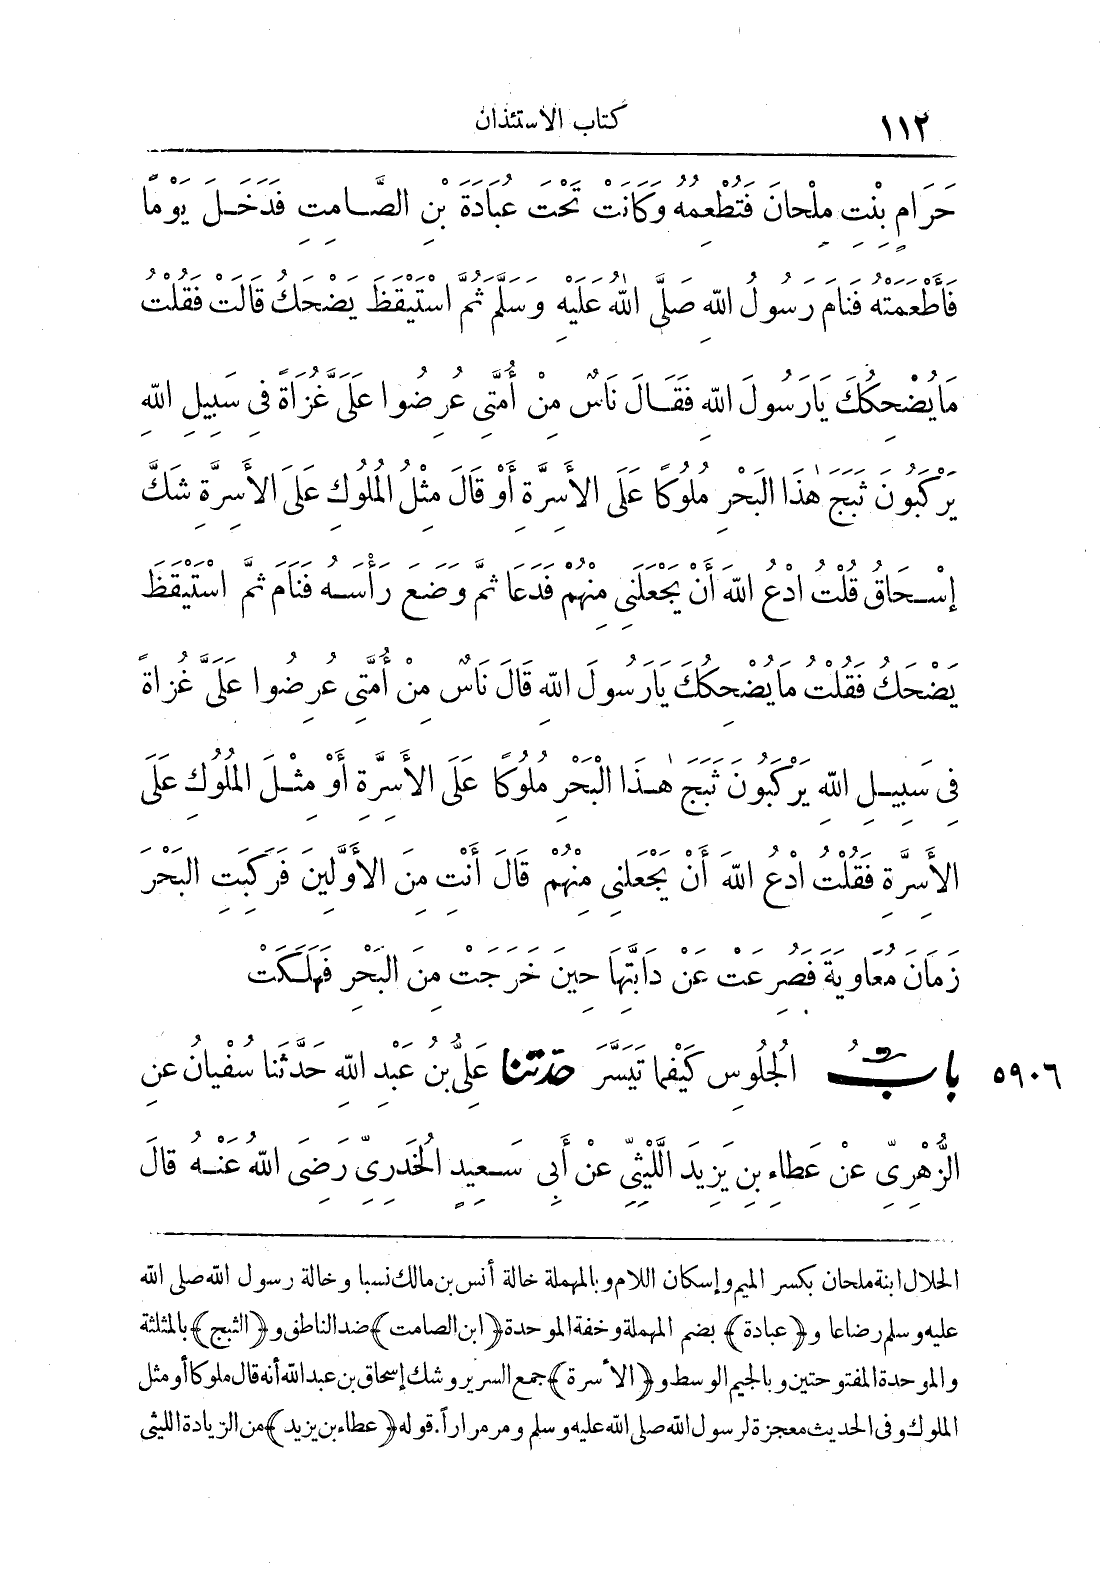 ١١٢ كتاب الاستئذان
حَرَامٍ بِنْتِ مِلْحَانَ فَتُطْعِمُهُ وَكَانَتْ تَحْتَ عُبَادَةَ بْنِ الصَّامِتِ فَدَخَلَ يَوْمًا
فَأَطْعَمَتْهُ فَنَامَ رَسُولُ اللّهِ صَلَّى اللّٰهُ عَلَيْهِ وَسَلَّمَ ثُمَّ اسْتَيْقَظَ يَضْحَكُ قَالَتْ فَقُلْتُ
مَا يُضْحِكُكَ يَارَسُولَ اللّهِ فَقَالَ نَاسٌ مِنْ أُمَّتِي عُرِضُوا عَلَيَّ غُزَاةً فِي سَبِيلِ اللّهِ
يَرْكَبُونَ ثَبَجَ هٰذَا الْبَحْرِ مُلُوكًا عَلَى الأَسِرَّةِ أَوْ قَالَ مِثْلُ الْمُلُوكِ عَلَى الأَسِرَّةِ شَكَّ
إِسْحَاقُ قُلْتُ ادْعُ اللّهَ أَنْ يَجْعَلَنِي مِنْهُمْ فَدَعَا ثُمَّ وَضَعَ رَأْسَهُ فَنَامَ ثُمَّ اسْتَيْقَظَ
يَضْحَكُ فَقُلْتُ مَا يُضْحِكُكَ يَارَسُولَ اللّهِ قَالَ نَاسٌ مِنْ أُمَّتِي عُرِضُوا عَلَيَّ غُزَاةً
فِي سَبِيلِ اللّهِ يَرْكَبُونَ ثَبَجَ هٰذَا الْبَحْرِ مُلُوكًا عَلَى الأَسِرَّةِ أَوْ مِثْلَ الْمُلُوكِ عَلَى
الأَسِرَّةِ فَقُلْتُ ادْعُ اللّهَ أَنْ يَجْعَلَنِي مِنْهُمْ قَالَ أَنْتِ مِنَ الأَوَّلِينَ فَرَكِبَتِ الْبَحْرَ
زَمَانَ مُعَاوِيَةَ فَصُرِعَتْ عَنْ دَابَّتِهَا حِينَ خَرَجَتْ مِنَ الْبَحْرِ فَهَلَكَتْ
٥٩٠٦ بابُ الْجُلُوسِ كَيْفَمَا تَيَسَّرَ حدثنا عَلِيُّ بْنُ عَبْدِ اللّهِ حَدَّثَنَا سُفْيَانُ عَنِ
الزُّهْرِيِّ عَنْ عَطَاءِ بْنِ يَزِيدَ اللَّيْثِيِّ عَنْ أَبِي سَعِيدٍ الْخُدْرِيِّ رَضِيَ اللّهُ عَنْهُ قَالَ
الحلال ابنة ملحان بكسر الميم وإسكان اللام وبالمهملة خالة أنس بن مالك نسبا وخالة رسول الله صلى الله
عليه وسلم رضاعا و﴿عبادة﴾ بضم المهملة وخفة الموحدة ﴿ابن الصامت﴾ ضد الناطق و﴿الثبج﴾ بالمثلثة
والموحدة المفتوحتين وبالجيم الوسط و﴿الأسرة﴾ جمع السرير وشك إسحاق بن عبد الله أنه قال ملوكا أو مثل
الملوك وفى الحديث معجزة لرسول الله صلى الله عليه وسلم ومر مراراً. قوله ﴿عطاء بن يزيد﴾ من الزيادة الليثى